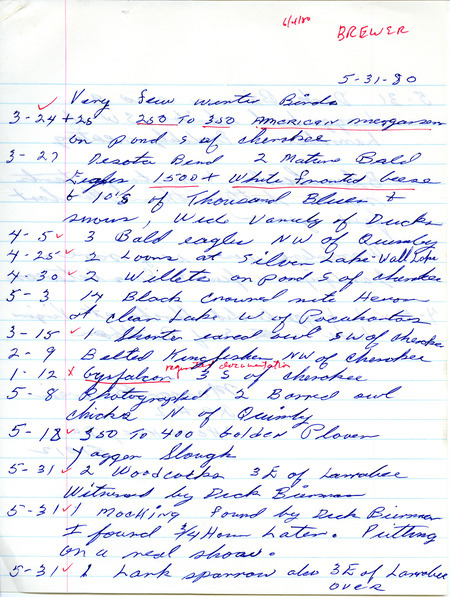 6/4/80
BREWER
5-31-80
Very few winter Birds
3-24+25 250 To 350 American merganser
on pond S of cherokee
3-27 Desota Bend 2 Mature Bald
Eagles 1500+ White fronted Geese
& 10's of Thousand Blues &
snows, Wide Variety of Ducks
4-5 3 Bald eagles NW of Quimby
4-25 2 Loons at Silver Lake - Wall Lake
4-30 2 Willets on pond S of cherokee
5-3 14 Black Crowned nite Heron
at clear Lake W of Pocahontas
3-15 1 Shorter eared owl SW of cherokee
2-9 Belted Kingfisher NW of cherokee
request documentation
1-12 x Gyrfalcon 3 S of cherokee
5-8 Photographed 2 Barred owl
chicks N of Quimby
5-18 350 To 400 Golden Plover
Jagger Slough
5-31 2 Woodcocks 3E of Larrabee
Witnessed by Dick Bierman
5-31 1 Mocking found by Dick Bierman
I found 3/4 Hour Later. Putting
on a real show.
5-31 1 Lark sparrow also 3E of Larrabee
OVER